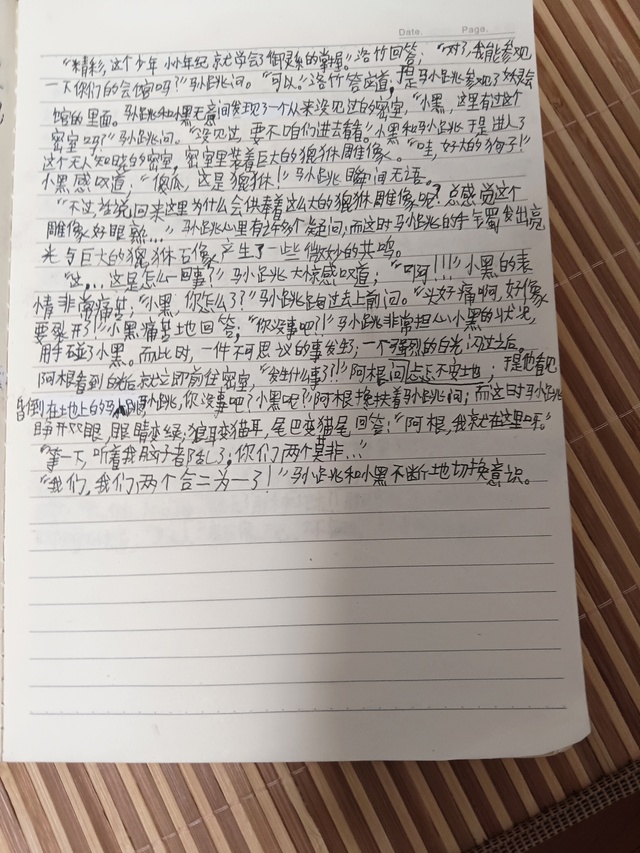 Date. Page.
“精彩,这个少年小小年纪就学会了御灵系的掌握。”洛竹回答;“对了,我能参观
一下你们的会馆吗?”马小跳问。“可以。”洛竹答应道,于是马小跳参观了妖灵会
馆的里面。马小跳和小黑无意间发现了一个从来没见过的密室,“小黑,这里有过这个
密室吗?”马小跳问。“没见过,要不咱们进去看看。”小黑和马小跳于是进入了
这个无人知晓的密室,密室里装着巨大的貔貅雕像。“哇,好大的狗子!”
小黑感叹道;“傻瓜,这是貔貅!”马小跳瞬间无语。
“不过,话说回来这里为什么会供奉这么大的貔貅雕像呢?总感觉这个
雕像好眼熟...”马小跳心里有许多个疑问;而这时马小跳的手镯发出亮
光与巨大的貔貅石像产生了一些微妙的共鸣。
“这,...这是怎么一回事?”马小跳大惊感叹道;“啊!!!”小黑的表
情非常痛苦;“小黑,你怎么了?”马小跳跑过去上前问。“头好痛啊,好像
要裂开了!”小黑痛苦地回答;“你没事吧?!”马小跳非常担心小黑的状况,
用手碰了小黑。而此时,一件不可思议的事发生了;一个强烈的白光闪过之后。
阿根看到白光后就立即前往密室,“发生什么事了?!”阿根问忐忑不安地;于是他看见
昏倒在土地上的马小跳,你没事吧?小黑呢?”阿根搀扶着马小跳问;而这时马小跳
睁开双眼,眼睛变绿,狼耳变猫耳,尾巴变猫尾回答:“阿根,我就在这里呀。”
“等一下,听着我脑子都乱了,你们两个莫非...”
“我们,我们两个合二为一了!”马小跳和小黑不断地切换意识。